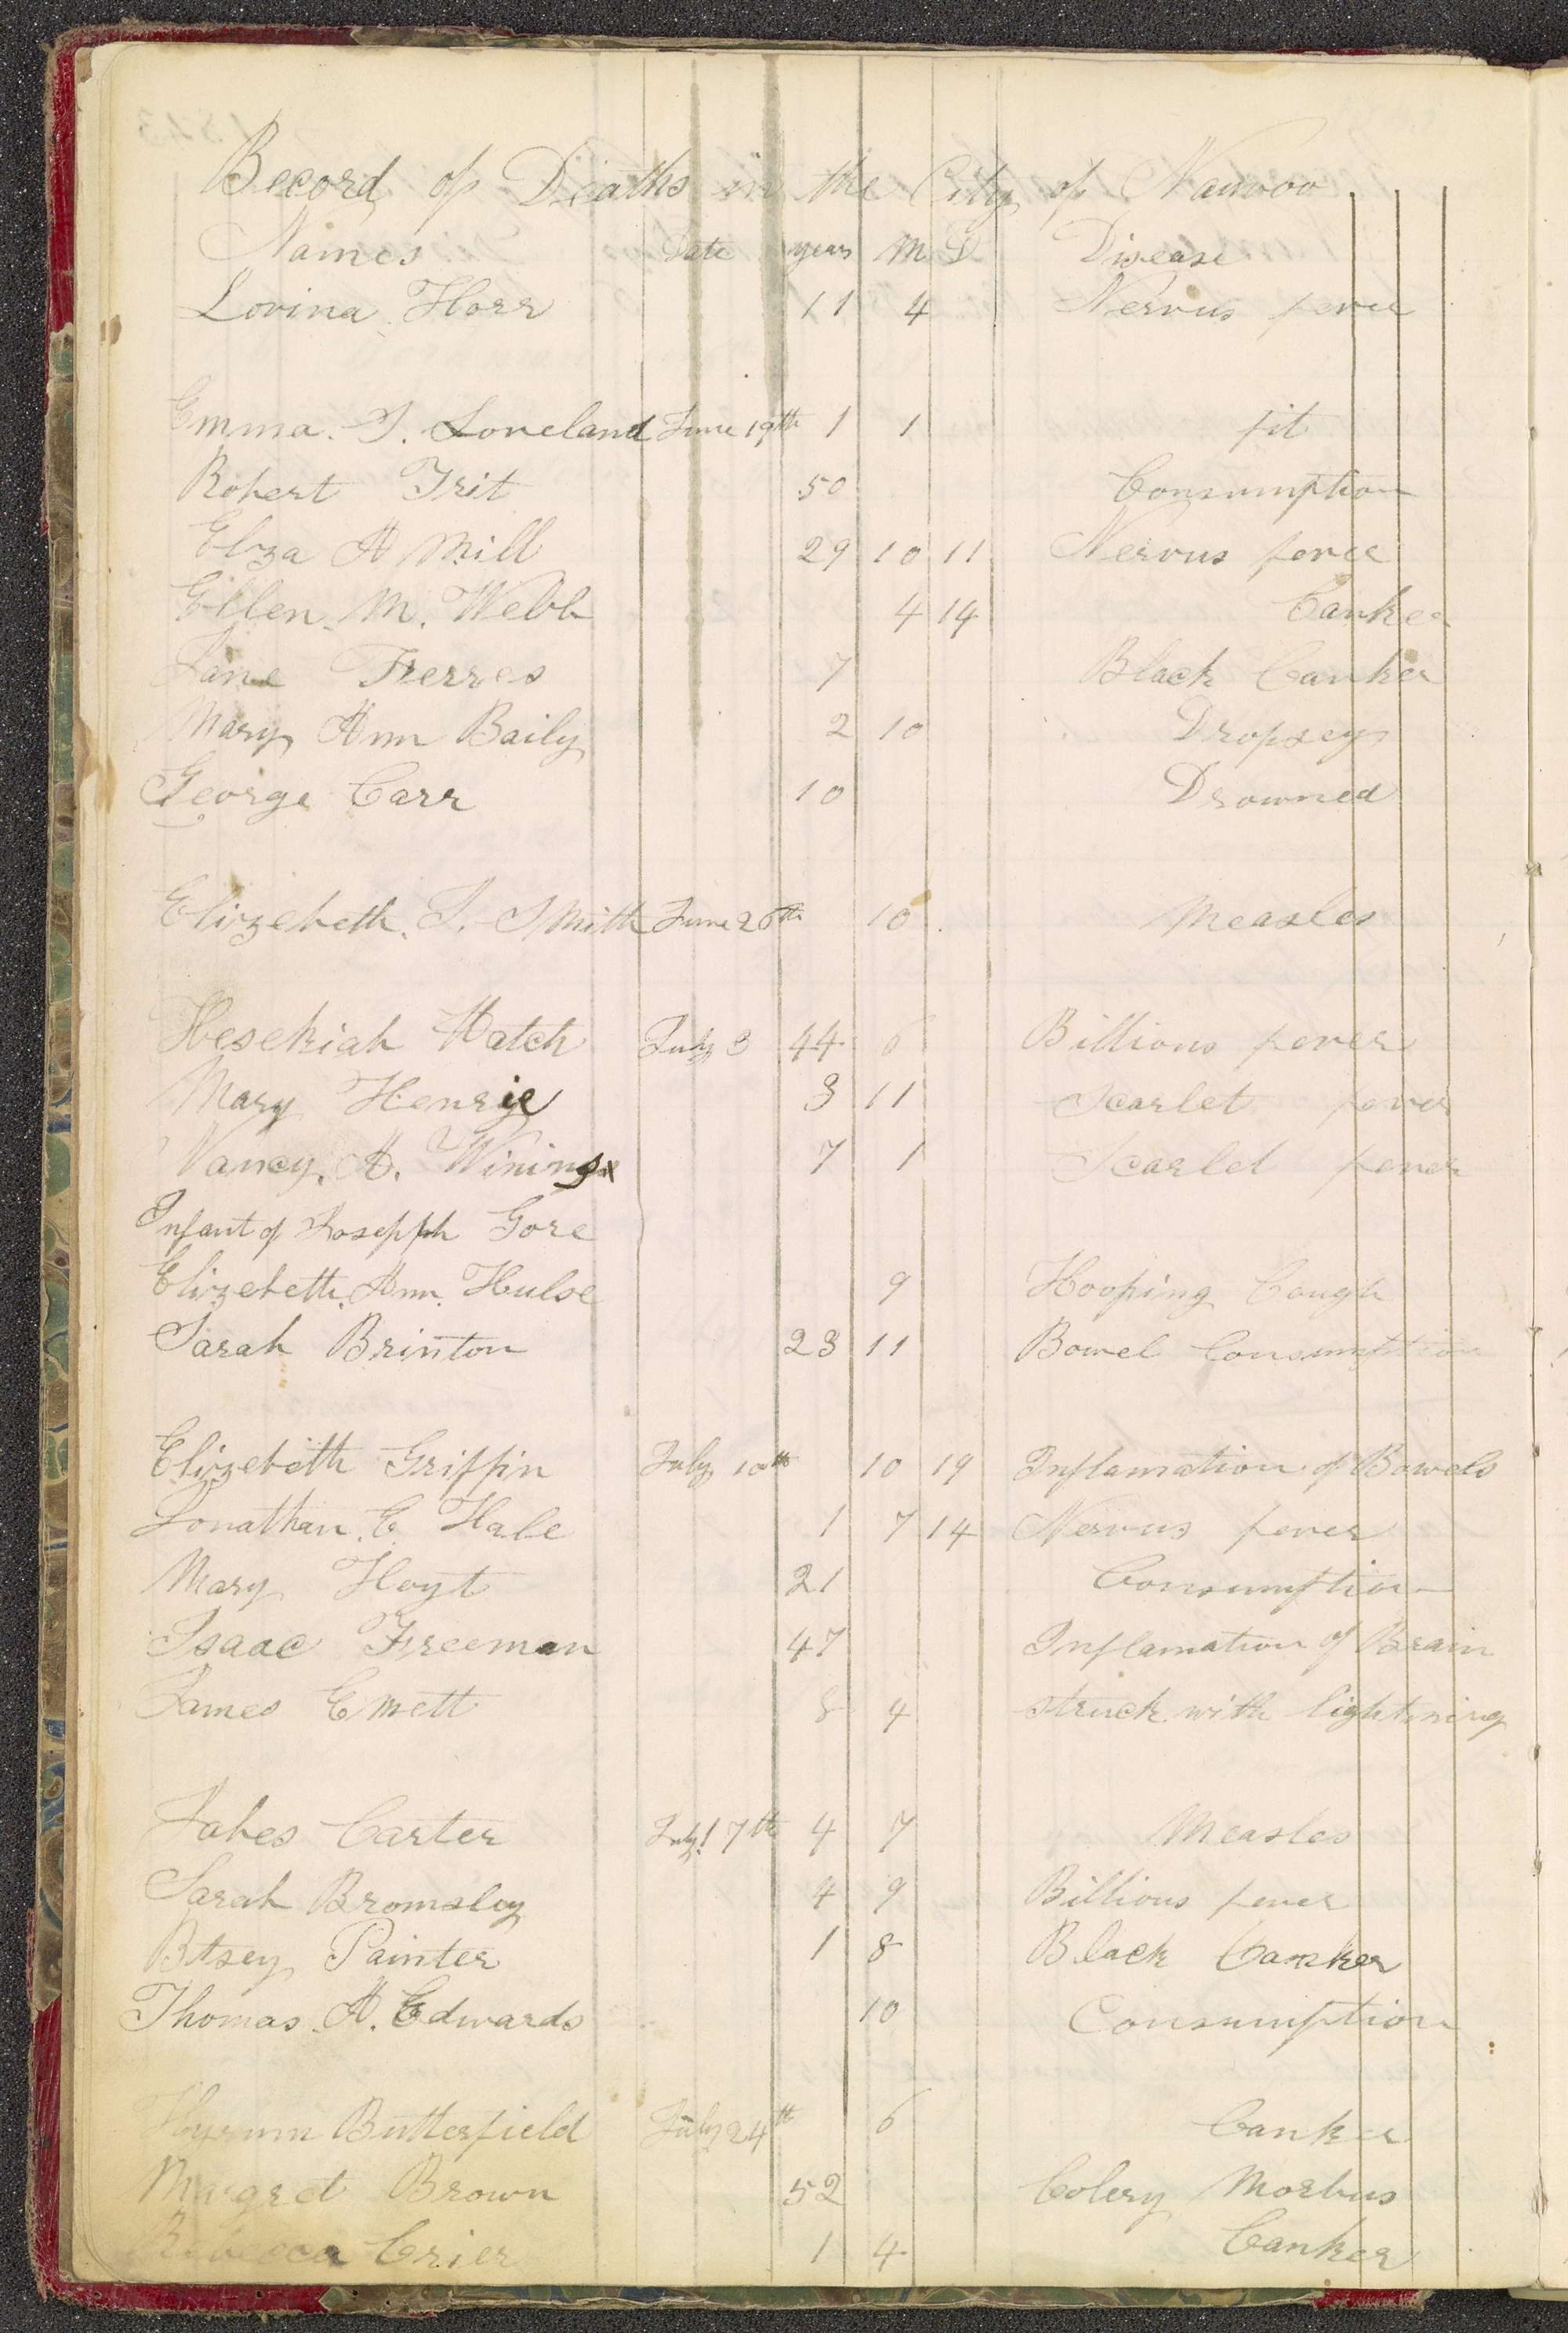 Record of Deaths in the City of Nauvoo
Names Date years M D Disease
Lovina Horr 11 4 Nervus fever
Emma. S. Loveland June 19th 1 1 fit
Robert Trit 50 Consumption
Eliza A Mill 29 10 11 Nervus fever
Ellen M. Webb 4 14 Canker
Jane 7 Black Canker
Mary Ann Baily 2 10 Dropsey
George Carr 10 Drowned
Elizebeth. J. Smith June 26th 10 Measles
Hesekiah Hatch July 3 44 6 Billious fever
Mary Henrie 3 11 Scarlet fever
Nancy. A. Wining 7 1 Scarlet fever
Infant of Joseph Gore
Elizebeth. Ann. Hulse 9 Hooping Cough
Sarah Brinton 23 11 Bowel Consumption
Elizebeth Griffin July 10th 10 19 Inflamation of Bowels
Jonathan. C Hale 1 7 14 Nervus fever
Mary Hoyt 21 Consumption
Isaac Freeman 47 Inflamation of Brain
James Emett 8 4 struck with lightining
Jabes Carter July 17th 4 7 Measles
Sarah Bromsley 4 9 Billious fever
Btsey Painter 1 8 Black Canker
Thomas. A. Edwards 10 Consumption
Hyrum Butterfield July 24th 6 Canker
Margret Brown 52 Colery Morbus
Rebecca Crier 1 4 Canker